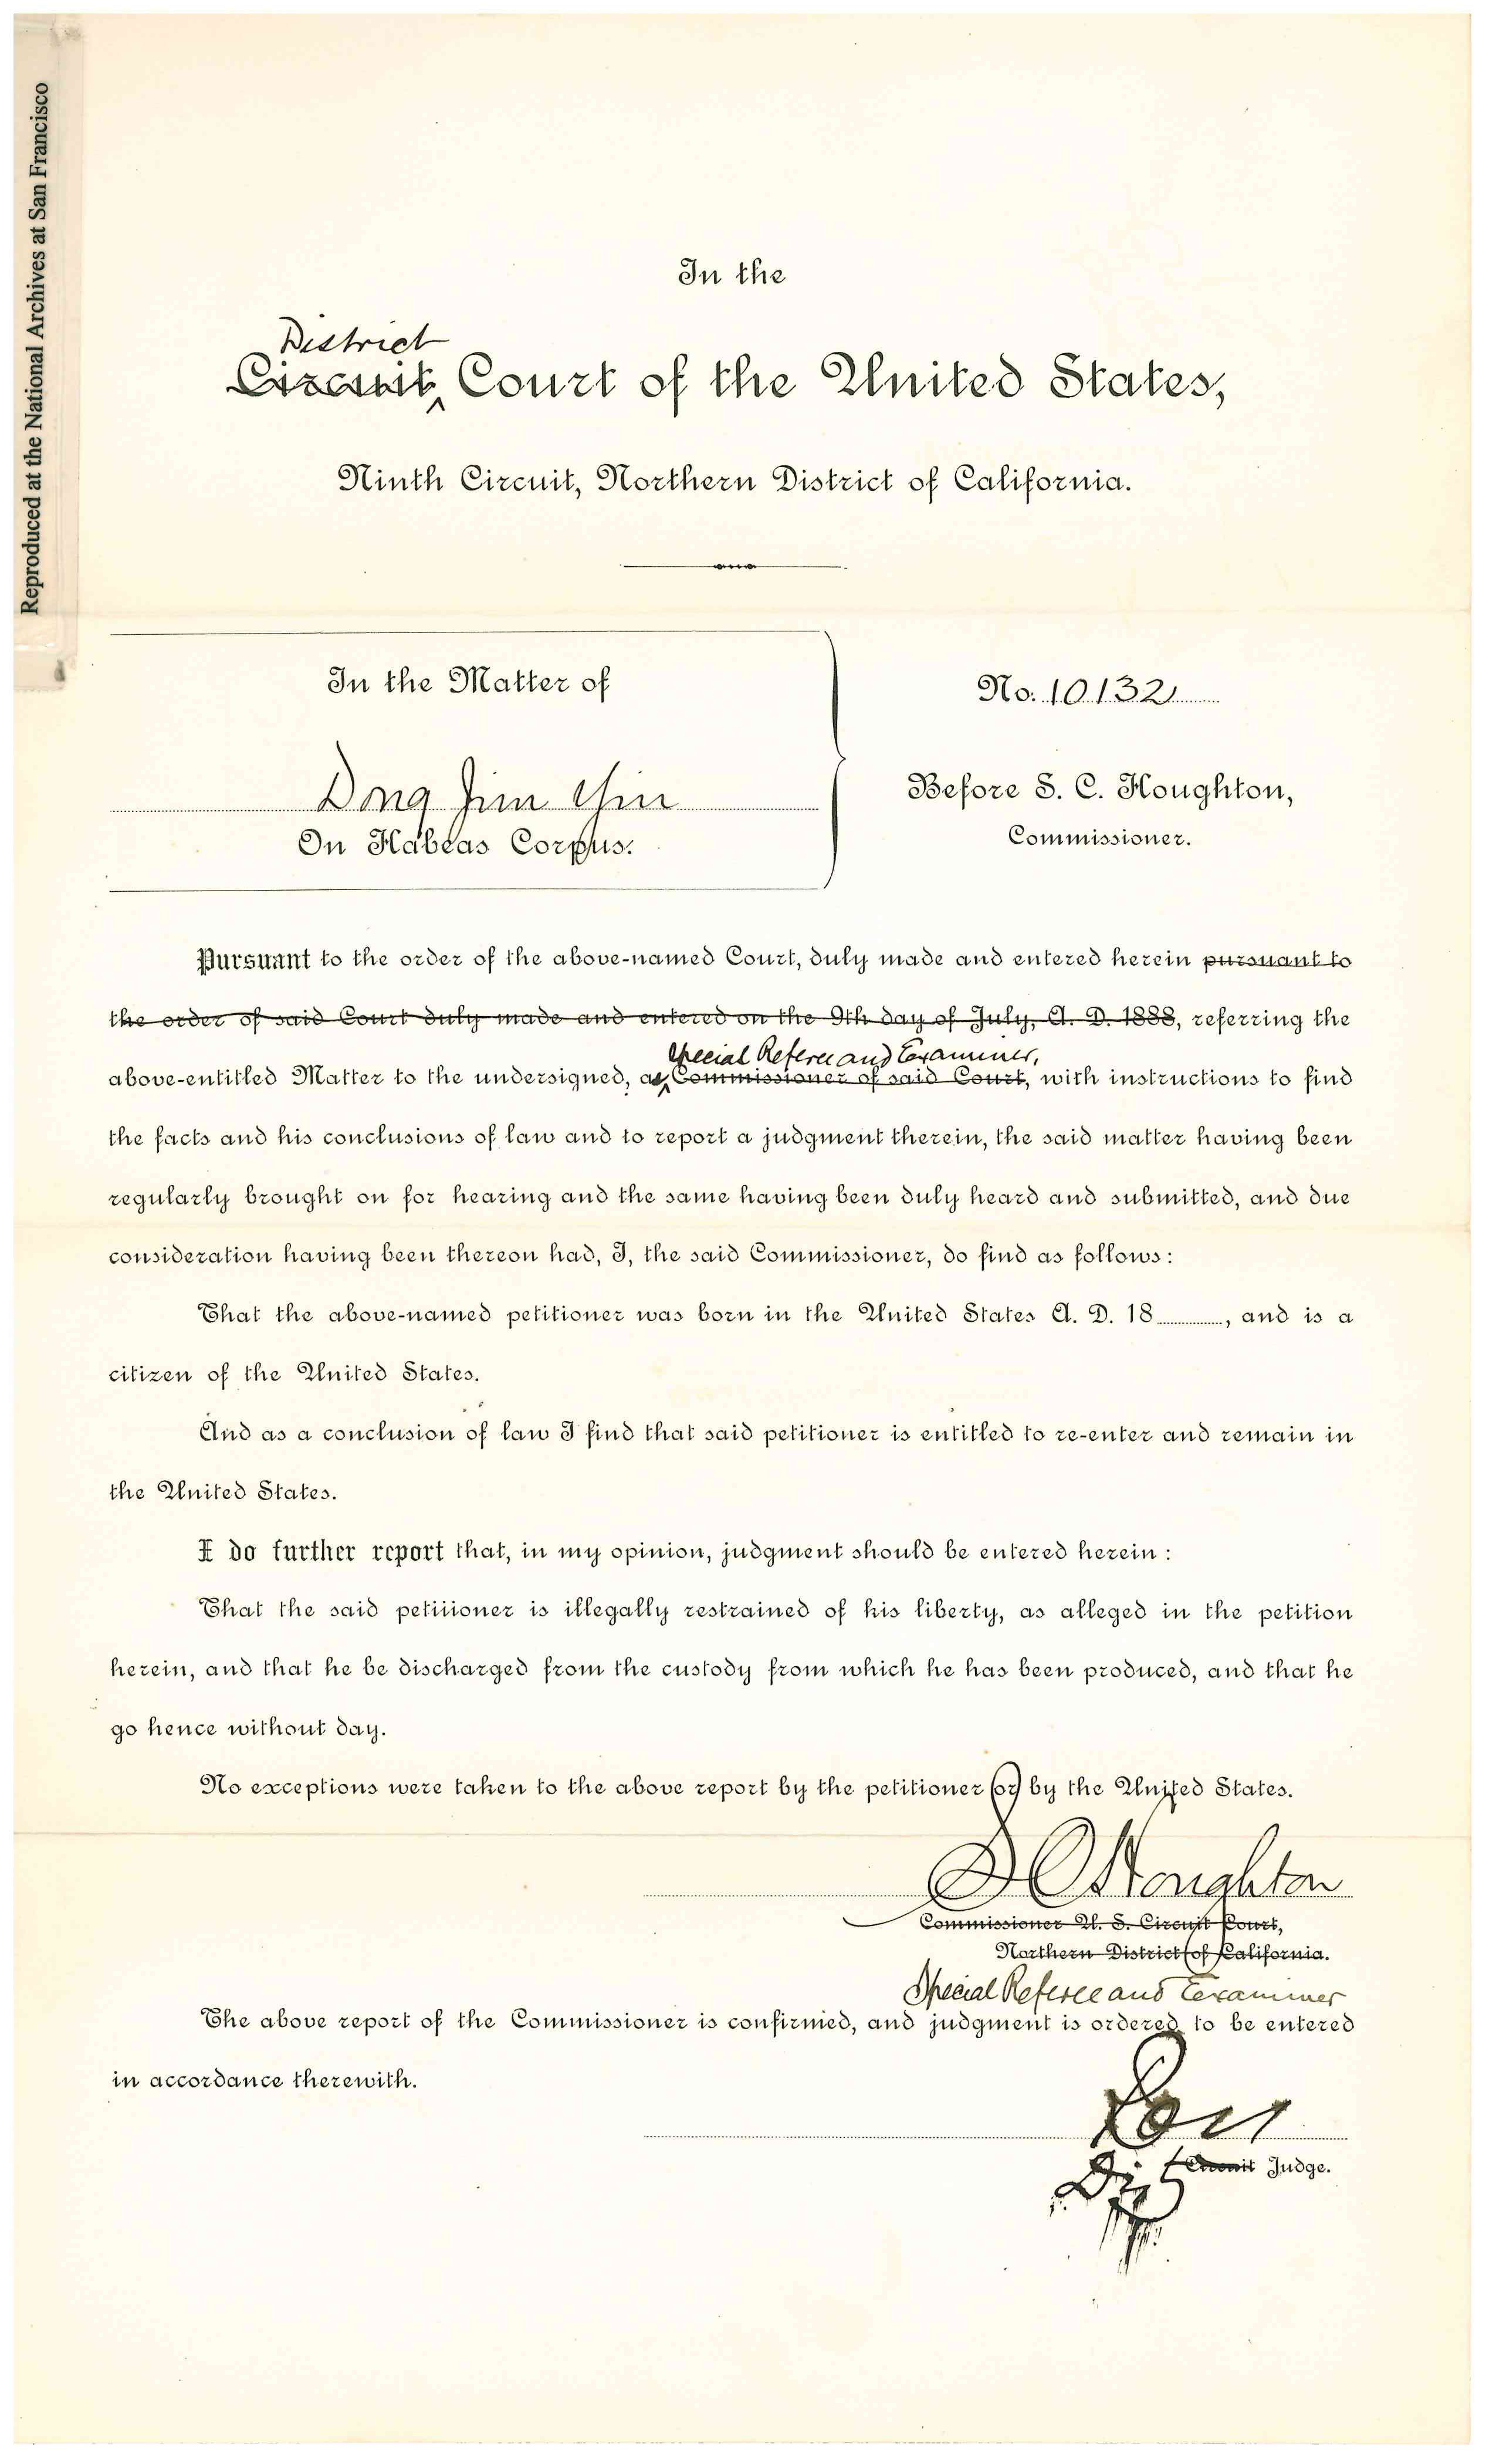 Reproduced at the National Archives at San Francisco
In the
District
Circuit Court of the United States,
Ninth Circuit, Northern District of California.
In the Matter of
No. 10132
Dong Jim Yin
Before S. C. Houghton,
On Habeas Corpus.
Commissioner.
Pursuant to the order of the above-named Court, duly made and entered herein pursuant to
the order of said Court duly made and entered on the 9th day of July, A. D. 1888, referring the
Special Referee and Examiner,
above-entitled Matter to the undersigned, as Commissioner of said Court, with instructions to find
the facts and his conclusions of law and to report a judgment therein, the said matter having been
regularly brought on for hearing and the same having been duly heard and submitted, and due
consideration having been thereon had, I, the said Commissioner, do find as follows:
That the above-named petitioner was born in the United States A. D. 18, and is a
citizen of the United States.
And as a conclusion of law I find that said petitioner is entitled to re-enter and remain in
the United States.
I do further report that, in my opinion, judgment should be entered herein:
That the said petitioner is illegally restrained of his liberty, as alleged in the petition
herein, and that he be discharged from the custody from which he has been produced, and that he
go hence without day.
No exceptions were taken to the above report by the petitioner or by the United States.
S C Houghton
Commissioner U. S. Circuit Court,
Northern District of California.
Special Referee and Examiner
The above report of the Commissioner is confirmed, and judgment is ordered to be entered
in accordance therewith.
Circuit Judge.